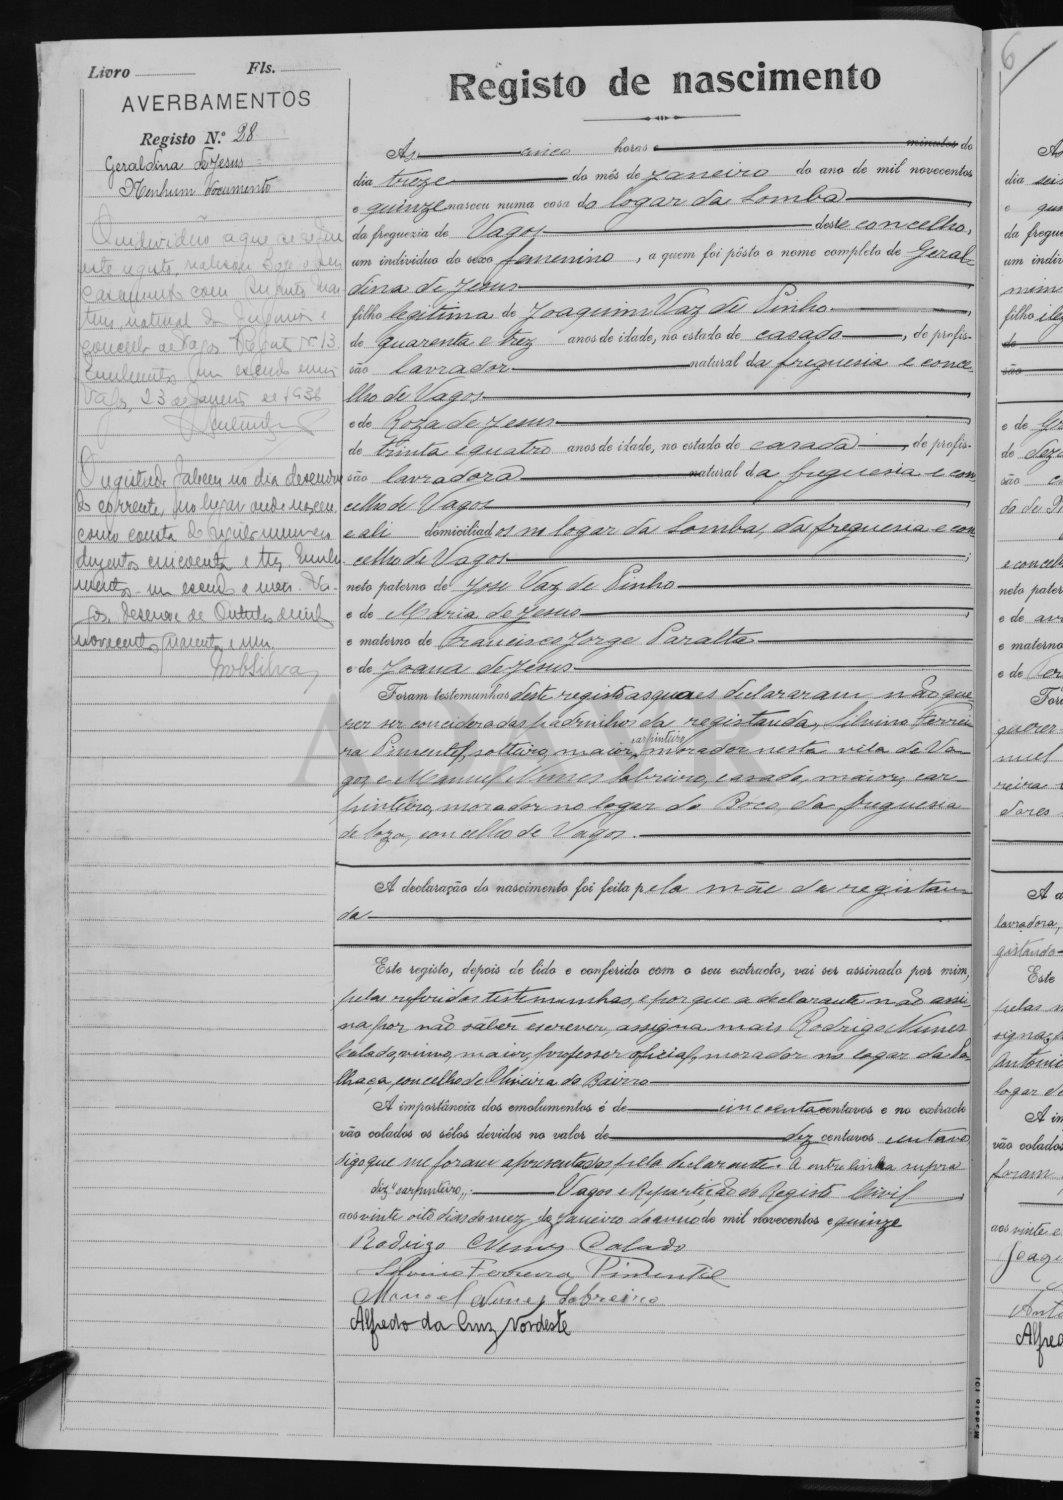 Livro Fls.
AVERBAMENTOS
Registo N.º 28
Geraldina de Jesus
Nenhum documento
O individuo a que se refere
este registo, realisou hoje o seu
casamento com
natural de e
concelho de Vagos. Nº 13.
Emolumentos um escudo
Vagos, 23 de Janeiro de 1936
O registado faleceu no dia dezenove
do corrente, no lugar onde nasceu,
como consta do registo numero
duzentos cincoenta e tres. Emolu-
mentos um escudo e meio. Va-
gos, dezenove de Outubro de mil
novecentos quarenta e um.
Silva
Registo de nascimento
Às cinco horas minutos do
dia treze do mês de Janeiro do ano de mil novecentos
e quinze nasceu numa casa do logar da Lomba
da freguezia de Vagos deste concelho,
um individuo do sexo femenino, a quem foi pôsto o nome completo de Geral-
dina de Jesus
filho legitima de Joaquim Vaz de Pinho
de quarenta e trez anos de idade, no estado de casado, de profis-
são lavrador natural da freguesia e conce-
lho de Vagos
e de Roza de Jesus
de trinta e quatro anos de idade, no estado de casada, de profis-
são lavradora natural da freguesia e con-
celho de Vagos
e ali domiciliados no logar da Lomba, da freguesia e con-
celho de Vagos
neto paterno de José Vaz de Pinho
e de Maria de Jesus
e materno de Francisco Jorge Paralta
e de Joana de Jesus
Foram testemunhas deste registo as quaes declararam não que-
rer ser concideradas padrinhos da registanda, Silvino Ferrei-
carpinteiro
ra Pimentel, solteiro, maior, morador nesta vila de Va-
gos, e Manuel Nunes Sobreiro, casado, maior, car-
pinteiro, morador no logar do Bóco, da freguesia
de Soza, concelho de Vagos.
A declaração do nascimento foi feita pela mãe da registan-
da.
Este registo, depois de lido e conferido com o seu extracto, vai ser assinado por mim,
pelas referidas testemunhas, e por que a declarante não assi-
na por não sabêr escrever, assigna mais Rodrigo Nunes
Calado, viuvo, maior, professor oficial, morador no logar da Pa-
lhaça, concelho de Oliveira do Bairro
A importância dos emolumentos é de cincoenta centavos e no extracto
vão colados os sêlos devidos no valor de dez centavos centavos
digo que me foram apresentados pela declarante. A entrelinha supra
diz "carpinteiro,, Vagos e Repartição do Registo Civil
aos vinte oito dias do mez de Janeiro do anno de mil novecentos e quinze
Rodrigo Nunes Calado
Silvino Ferreira Pimentel
Manoel Nunes Sobreiro
Alfredo da Cruz Nordeste
Modelo 101
ADAVR
6
As
dia seis
e quin
da fregue
um indiv
filho
de
são
e de
de
são
e concelh
neto pater
e de
e materno
e de
Fora
querer
nuel
reira
dores
A d
lavradora,
gistando
Este
pelas
Antoni
logar d
A im
vão colados
foram
aos vinte e
Joaqu
Alfred